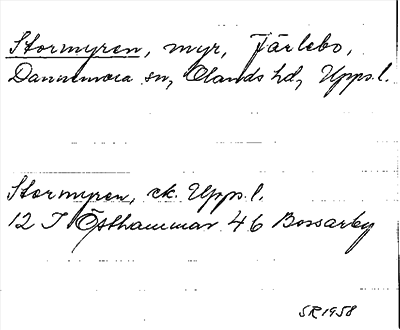 Stormyren, myr, Järlebo,
Dannemora sn, Olands hd, Upps.l.
Stormyren, ek. Upps.l.
12 I Östhammar 46 Bossarby
SR 1958